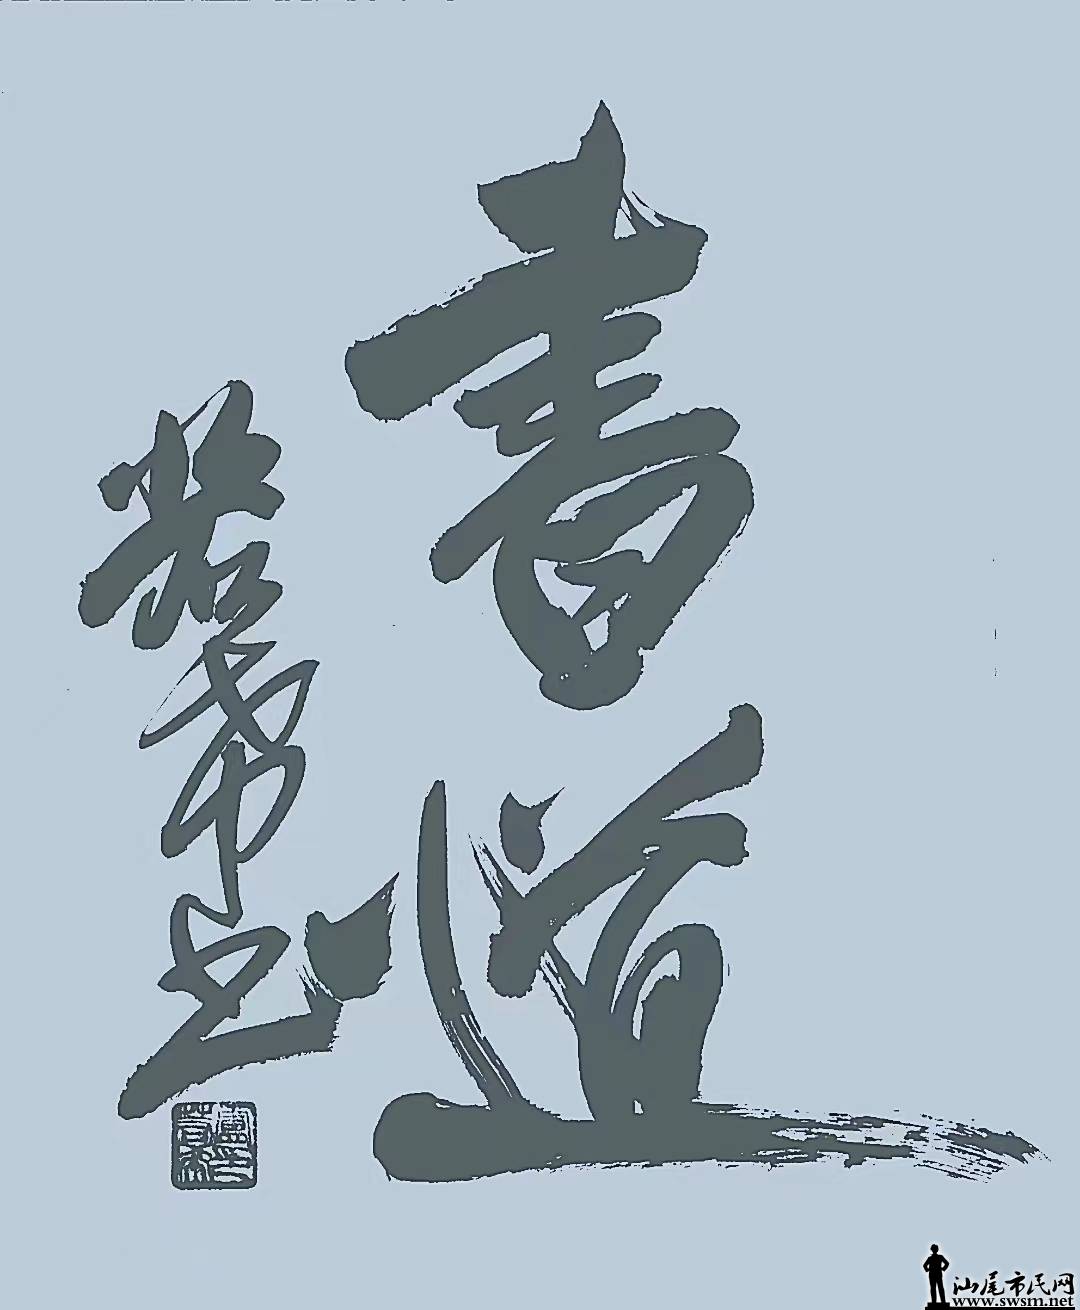 書道
希书
汕尾市民网
www.swsm.net